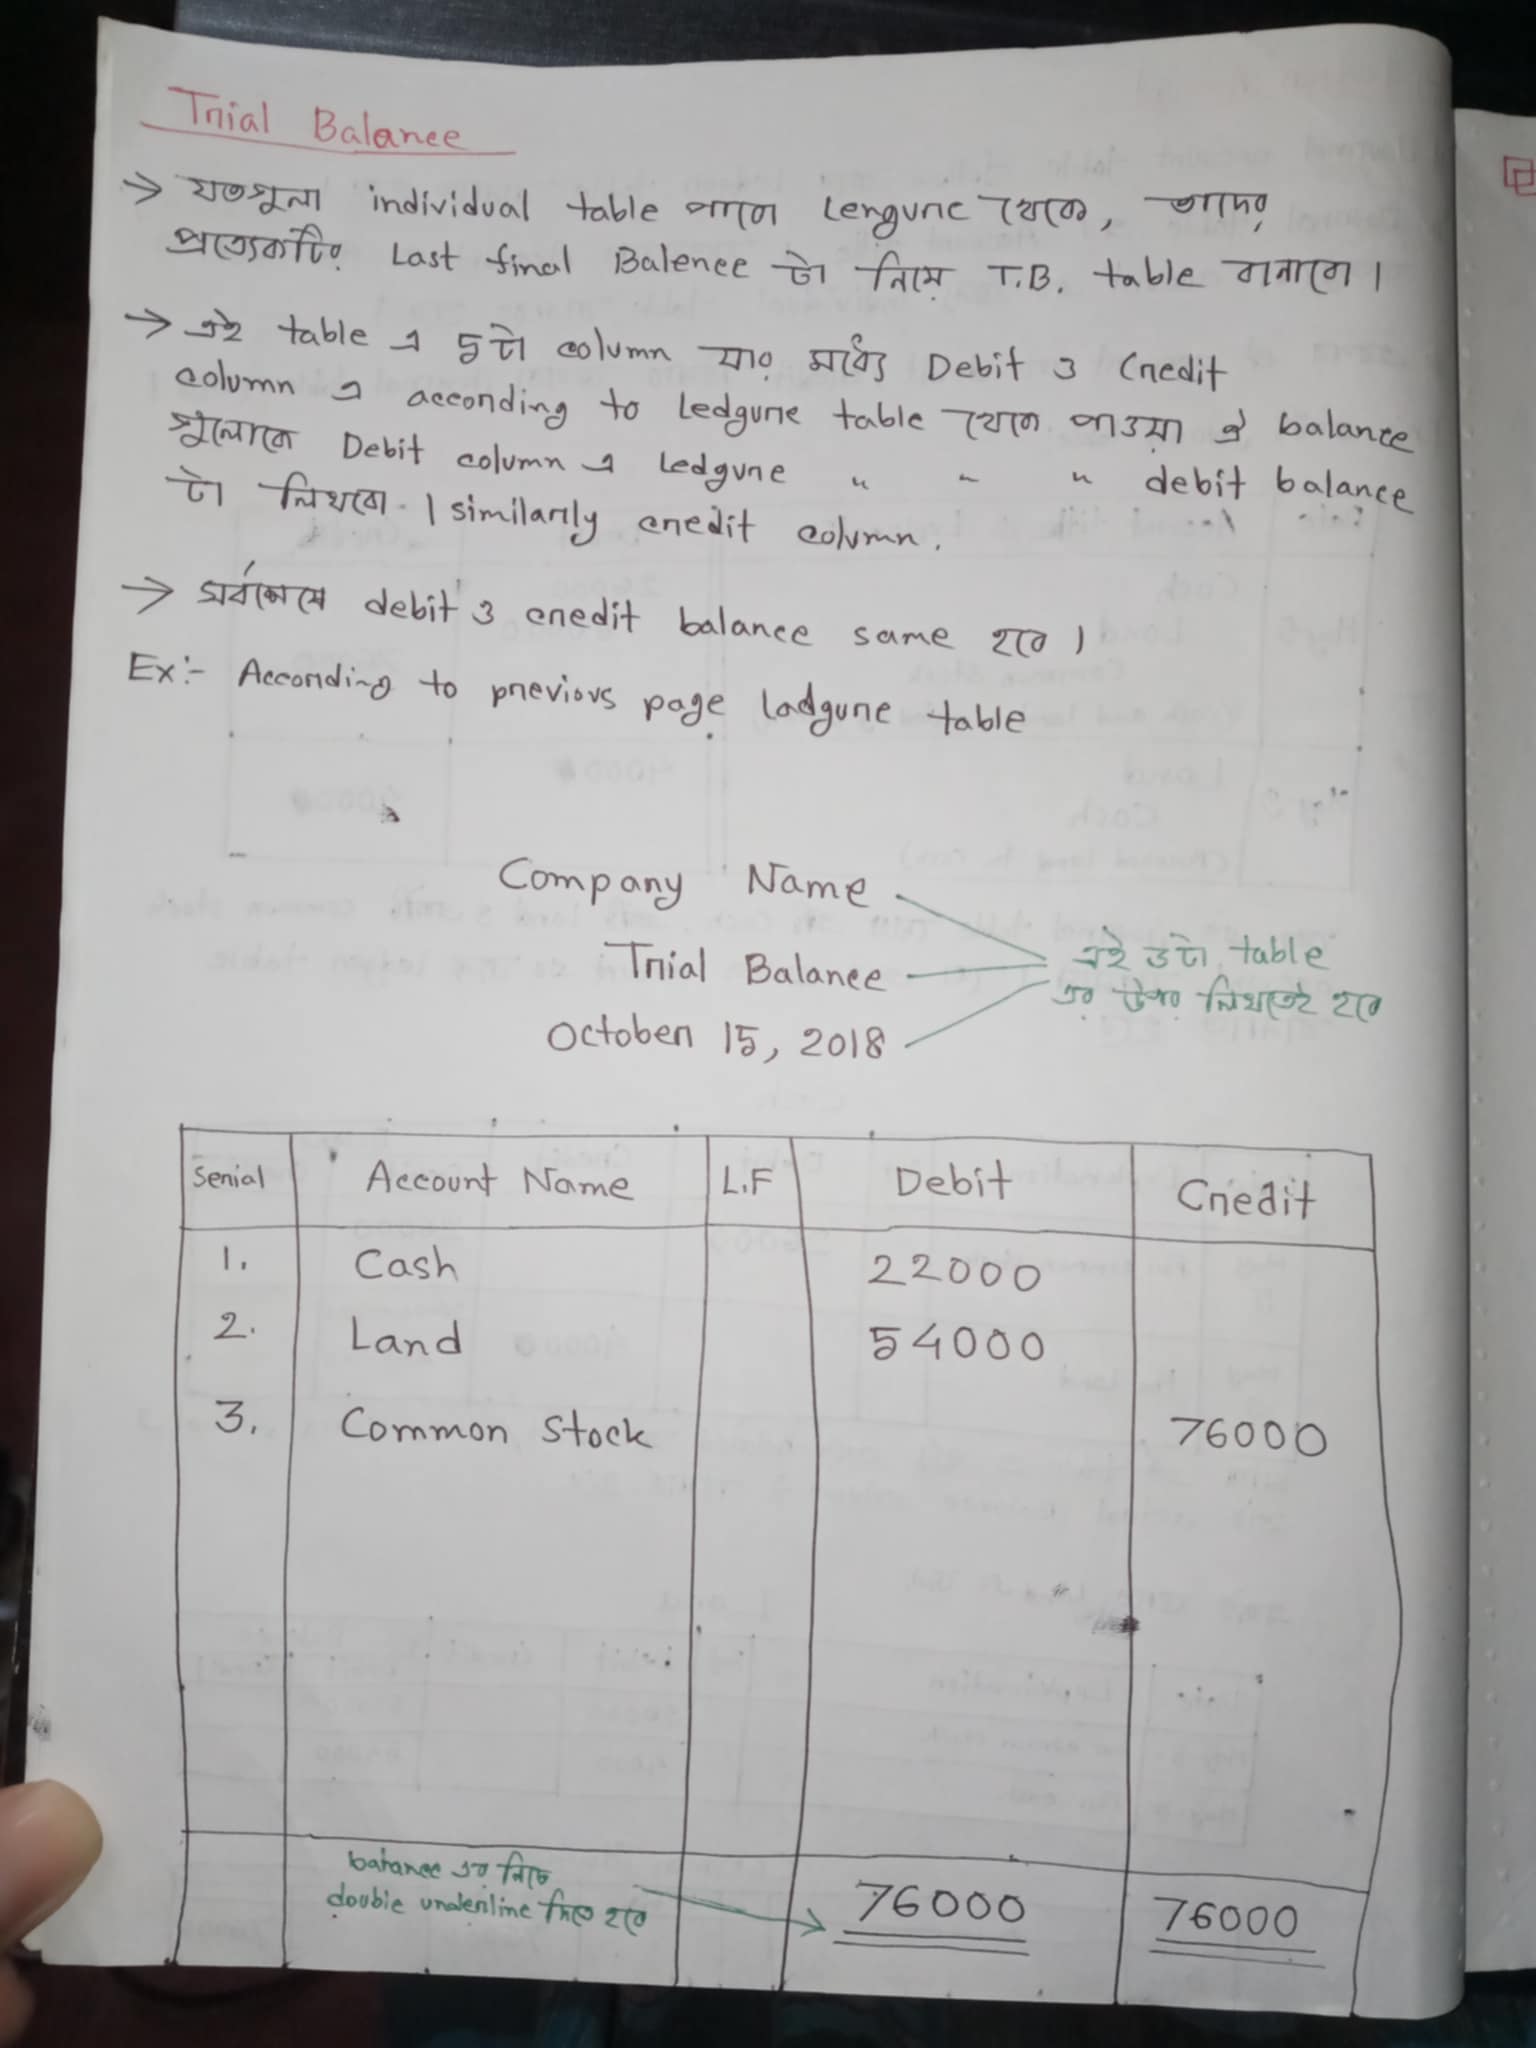 Trial Balance
→ যতগুলা individual table পাবো Lengure থেকে, তাদের
প্রত্যেকটির Last final Balence টা নিয়ে T.B. table বানাবো।
→ এই table এ ५টা column যার মধ্যে Debit ও Credit
column এ according to Ledgure table থেকে পাওয়া ঐ balance
গুলোকে Debit column এ Ledgure " " " debit balance
টা লিখবো। similarly credit column.
→ সর্বশেষে debit ও credit balance same হবে।
Ex:- According to previous page Ladgure table
Company Name
Trial Balance
October 15, 2018
এই ৩টা table
এর উপর লিখতেই হবে
Serial Account Name L.F Debit Credit
1. Cash 22000
2. Land 54000
3. Common Stock 76000
balance এর নিচে
double underline দিতে হবে
76000 76000